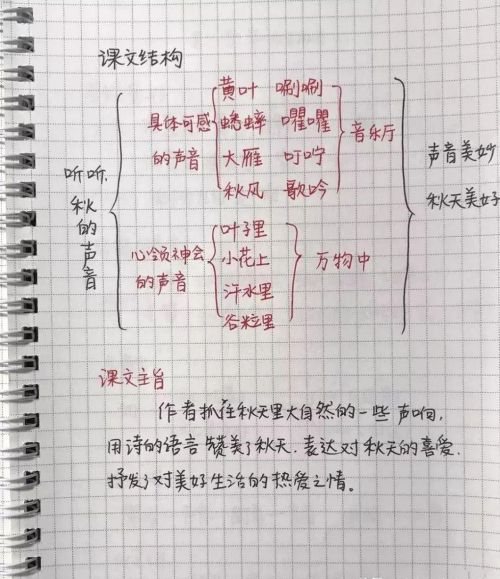 课文结构
听听,秋的声音
具体可感的声音
黄叶 唰唰
蟋蟀 㘗㘗
大雁 叮咛
秋风 歌吟
音乐厅
心领神会的声音
叶子里
小花上
汗水里
谷粒里
万物中
声音美妙
秋天美好
课文主旨
作者抓住秋天里大自然的一些声响,
用诗的语言赞美了秋天,表达对秋天的喜爱,
抒发了对美好生活的热爱之情。